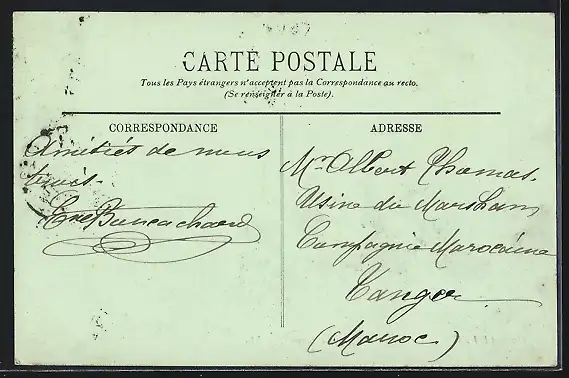 CARTE POSTALE
Tous les Pays étrangers n'acceptent pas la Correspondance au recto.
(Se renseigner à la Poste).
CORRESPONDANCE
Amitiés de nous
tous
ADRESSE
Mr Albert Thomas.
Usine du Marshan
Compagnie Marocaine
Tanger
(Maroc)